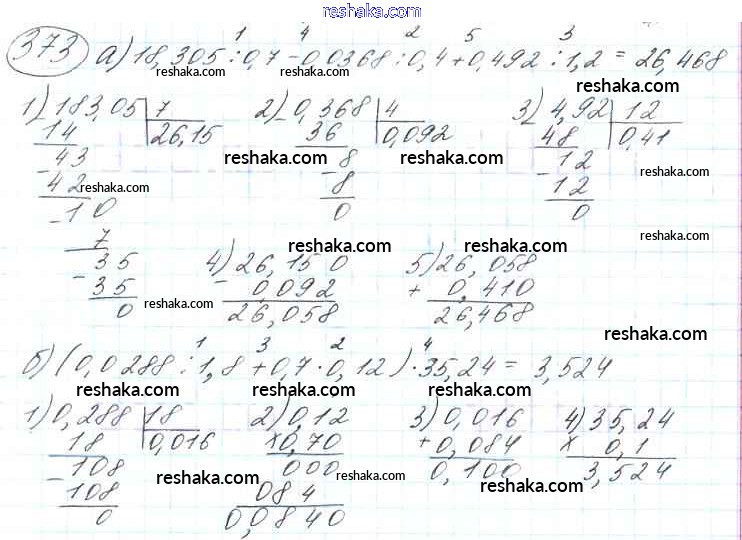 reshaka.com
373 а) 18,305 : 0,7 - 0,0368 : 0,4 + 0,492 : 1,2 = 26,468
1 4 2 5 3
reshaka.com reshaka.com reshaka.com
1) 183,05 7 2) 0,368 4 3) 4,92 12
14 26,15 36 0,092 48 0,41
43 8 12
42 8 12
10 0 0
reshaka.com reshaka.com reshaka.com reshaka.com
7
35 4) 26,150 5) 26,058
35 - 0,092 + 0,410
0 26,058 26,468
reshaka.com reshaka.com reshaka.com reshaka.com reshaka.com
б) (0,0288 : 1,8 + 0,7 · 0,12) · 35,24 = 3,524
1 3 2 4
reshaka.com reshaka.com reshaka.com
1) 0,288 18 2) 0,12 3) 0,016 4) 35,24
18 0,016 × 0,70 + 0,084 × 0,1
108 000 0,100 3,524
108 084
0 0,0840
reshaka.com reshaka.com reshaka.com